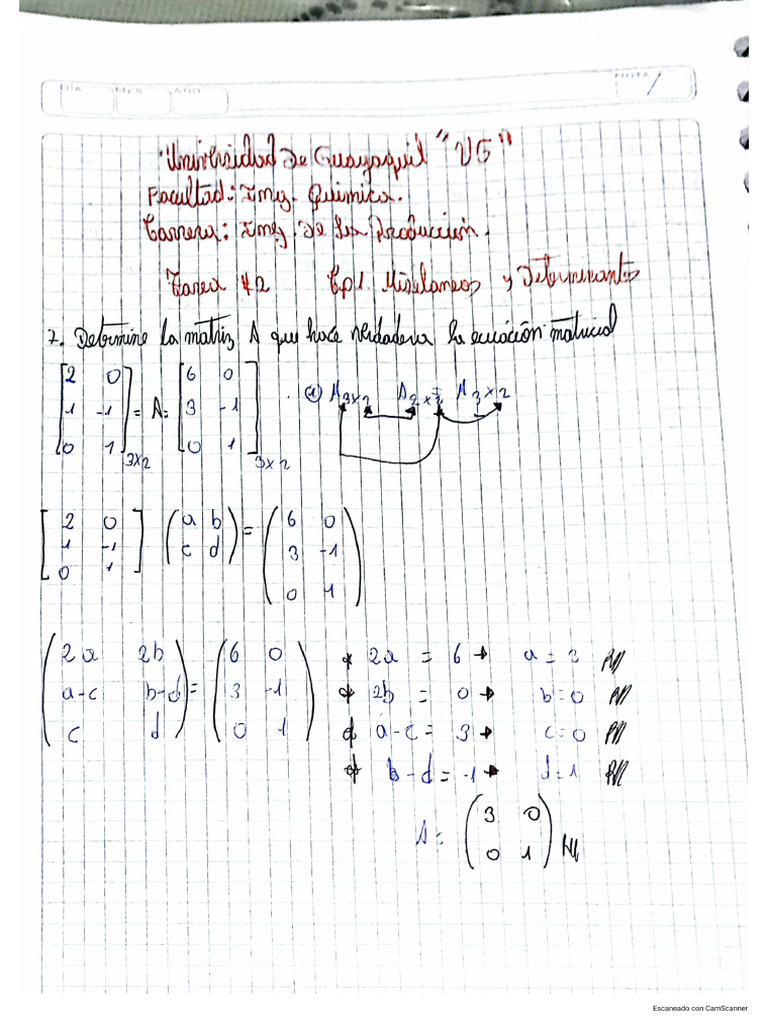 DÍA MES AÑO NOTA
"Universidad De Guayaquil "UG"
Facultad: Ing. Quimica.
Carrera: Ing. De La Producción.
Tarea #2 Cp1. Miselaneos y Determinantes
7. Determine la matriz A que hace verdadera la ecuación matricial
2 0 6 0
1 -1 = A = 3 -1 A 3x2 A 2x2 A 3x2
0 1 3x2 0 1 3x2
2 0 a b 6 0
1 -1 c d = 3 -1
0 1 0 1
2a 2b 6 0 * 2a = 6 → a = 3
a-c b-d = 3 -1 * 2b = 0 → b = 0
c d 0 1 a-c = 3 → c = 0
b-d = -1 → d = 1
A = 3 0
0 1
Escaneado con CamScanner